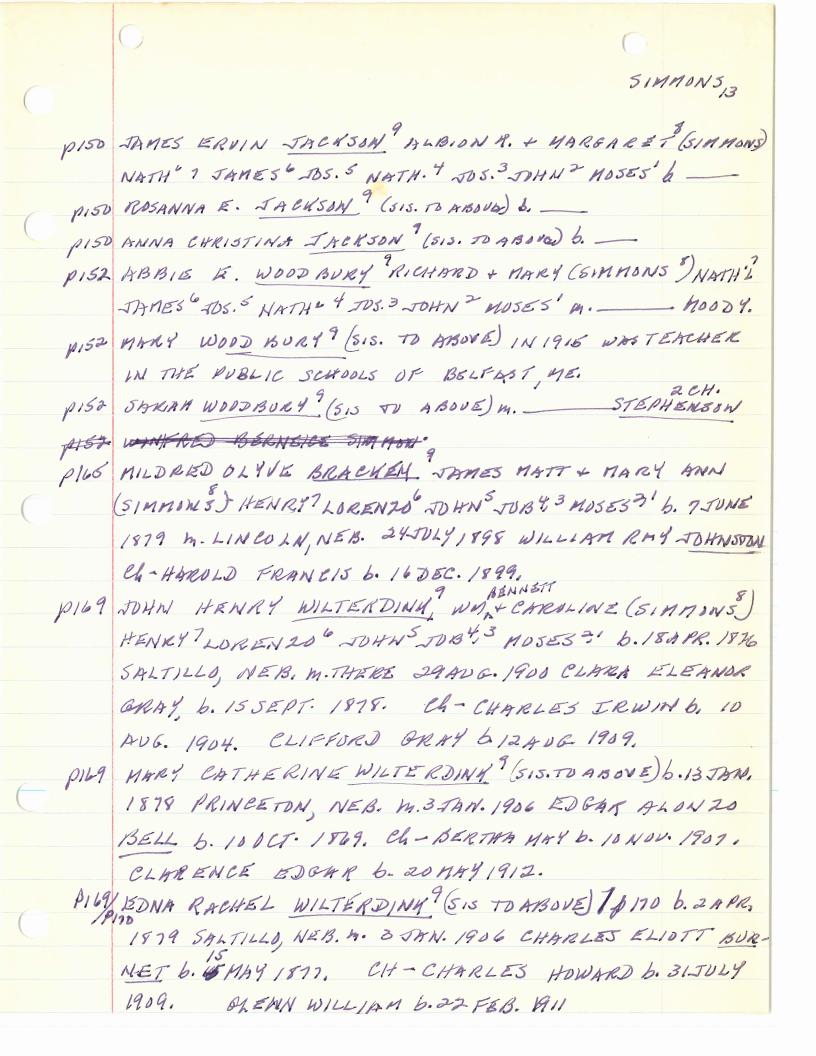 SIMMONS 13
p150 JAMES ERVIN JACKSON⁹ ALBION R. + MARGARET⁸ (SIMMONS)
NATH'L⁷ JAMES⁶ JOS.⁵ NATH.⁴ JOS.³ JOHN² MOSES¹ b ——
p150 ROSANNA E. JACKSON⁹ (SIS. TO ABOVE) b. ——
p150 ANNA CHRISTINA JACKSON⁹ (SIS. TO ABOVE) b. ——
p152 ABBIE E. WOODBURY⁹ RICHARD + MARY (SIMMONS⁸) NATH'L⁷
JAMES⁶ JOS.⁵ NATH'L⁴ JOS.³ JOHN² MOSES¹ m. —— MOODY.
p152 MARY WOODBURY⁹ (SIS. TO ABOVE) IN 1915 WAS TEACHER
IN THE PUBLIC SCHOOLS OF BELFAST, ME.
2 CH.
p152 SARAH WOODBURY⁹ (SIS TO ABOVE) m. —— STEPHENSON
p157 WINFRED BERNEICE SIMMON
p165 MILDRED OLYVE BRACKEM⁹ JAMES MATT + MARY ANN
(SIMMONS⁸) HENRY⁷ LORENZO⁶ JOHN⁵ JOB⁴,³ MOSES²,¹ b. 7 JUNE
1879 m. LINCOLN, NEB. 24 JULY 1898 WILLIAM RAY JOHNSTON
Ch - HAROLD FRANCIS b. 16 DEC. 1899.
BENNETT
p169 JOHN HENRY WILTERDINK⁹, WM. + CAROLINE (SIMMONS⁸)
HENRY⁷ LORENZO⁶ JOHN⁵ JOB⁴,³ MOSES²,¹ b. 18 APR. 1876
SALTILLO, NEB. m. THERE 29 AUG. 1900 CLARA ELEANOR
GRAY, b. 15 SEPT. 1878. Ch - CHARLES IRWIN b. 10
AUG. 1904. CLIFFORD GRAY b 12 AUG 1909.
p169 MARY CATHERINE WILTERDINK⁹ (SIS. TO ABOVE) b. 13 JAN.
1878 PRINCETON, NEB. m. 3 JAN. 1906 EDGAR ALONZO
BELL b. 10 OCT. 1869. Ch - BERTHA MAY b. 10 NOV. 1907.
CLARENCE EDGAR b. 20 MAY 1912.
P169/ EDNA RACHEL WILTERDINK⁹ (SIS TO ABOVE) / p170 b. 2 APR.
/P170
1879 SALTILLO, NEB. m. 3 JAN. 1906 CHARLES ELIOTT BUR-
15
NET b. MAY 1877. CH - CHARLES HOWARD b. 31 JULY
1909. GLENN WILLIAM b. 22 FEB. 1911